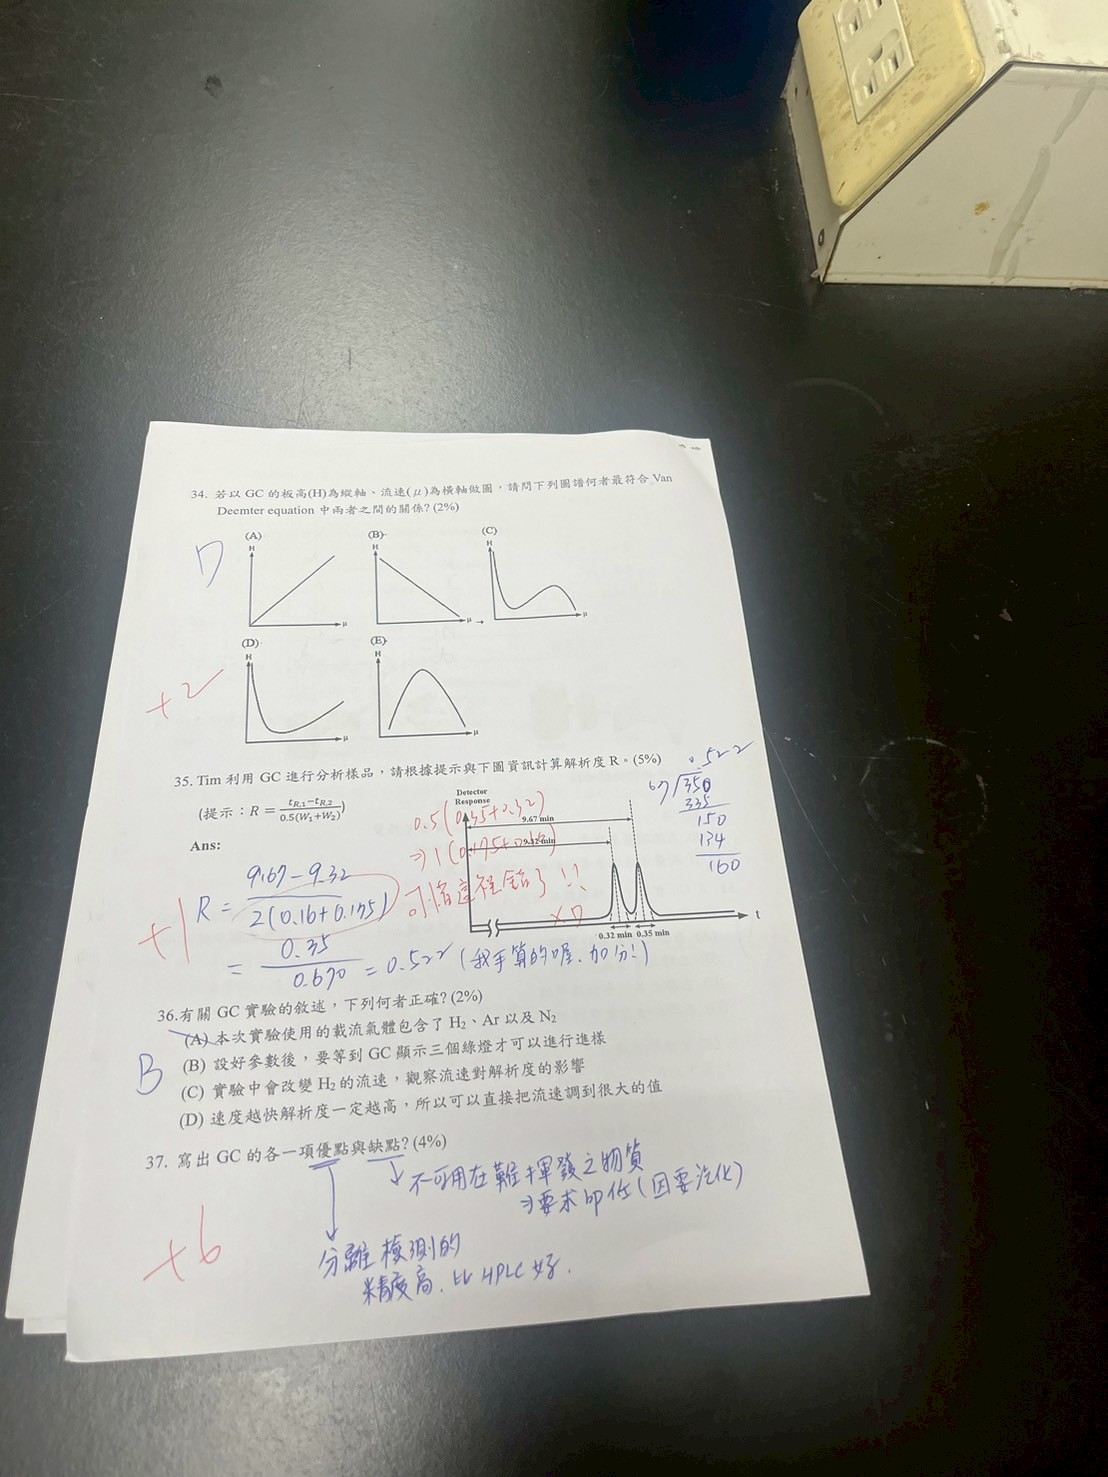 34. 若以 GC 的板高(H)為縱軸、流速(μ)為橫軸做圖，請問下列圖譜何者最符合 Van
Deemter equation 中兩者之間的關係? (2%)
D
(A) (B) (C)
H H H
μ μ μ
(D) (E)
H H
μ μ
+2
35. Tim 利用 GC 進行分析樣品，請根據提示與下圖資訊計算解析度 R。(5%)
(提示：R = (t_R,1 − t_R,2) / 0.5(W₁+W₂))
Ans:
Detector
Response
9.67 min
9.32 min
0.32 min 0.35 min
t
0.522
67 350
335
150
134
160
0.5(0.35+0.32)
⇒1(0.175+0.16)
可惜這裡錯了!!
XD
R = 9.67 − 9.32 / 2(0.16+0.175)
= 0.35 / 0.670 = 0.522 (我手算的喔，加分!)
+1
36.有關 GC 實驗的敘述，下列何者正確? (2%)
(A) 本次實驗使用的載流氣體包含了 H₂、Ar 以及 N₂
B
(B) 設好參數後，要等到 GC 顯示三個綠燈才可以進行進樣
(C) 實驗中會改變 H₂ 的流速，觀察流速對解析度的影響
(D) 速度越快解析度一定越高，所以可以直接把流速調到很大的值
37. 寫出 GC 的各一項優點與缺點? (4%)
不可用在難揮發之物質
⇒要求 (因要汽化)
分離檢測的
精度高，比 HPLC 好.
+6